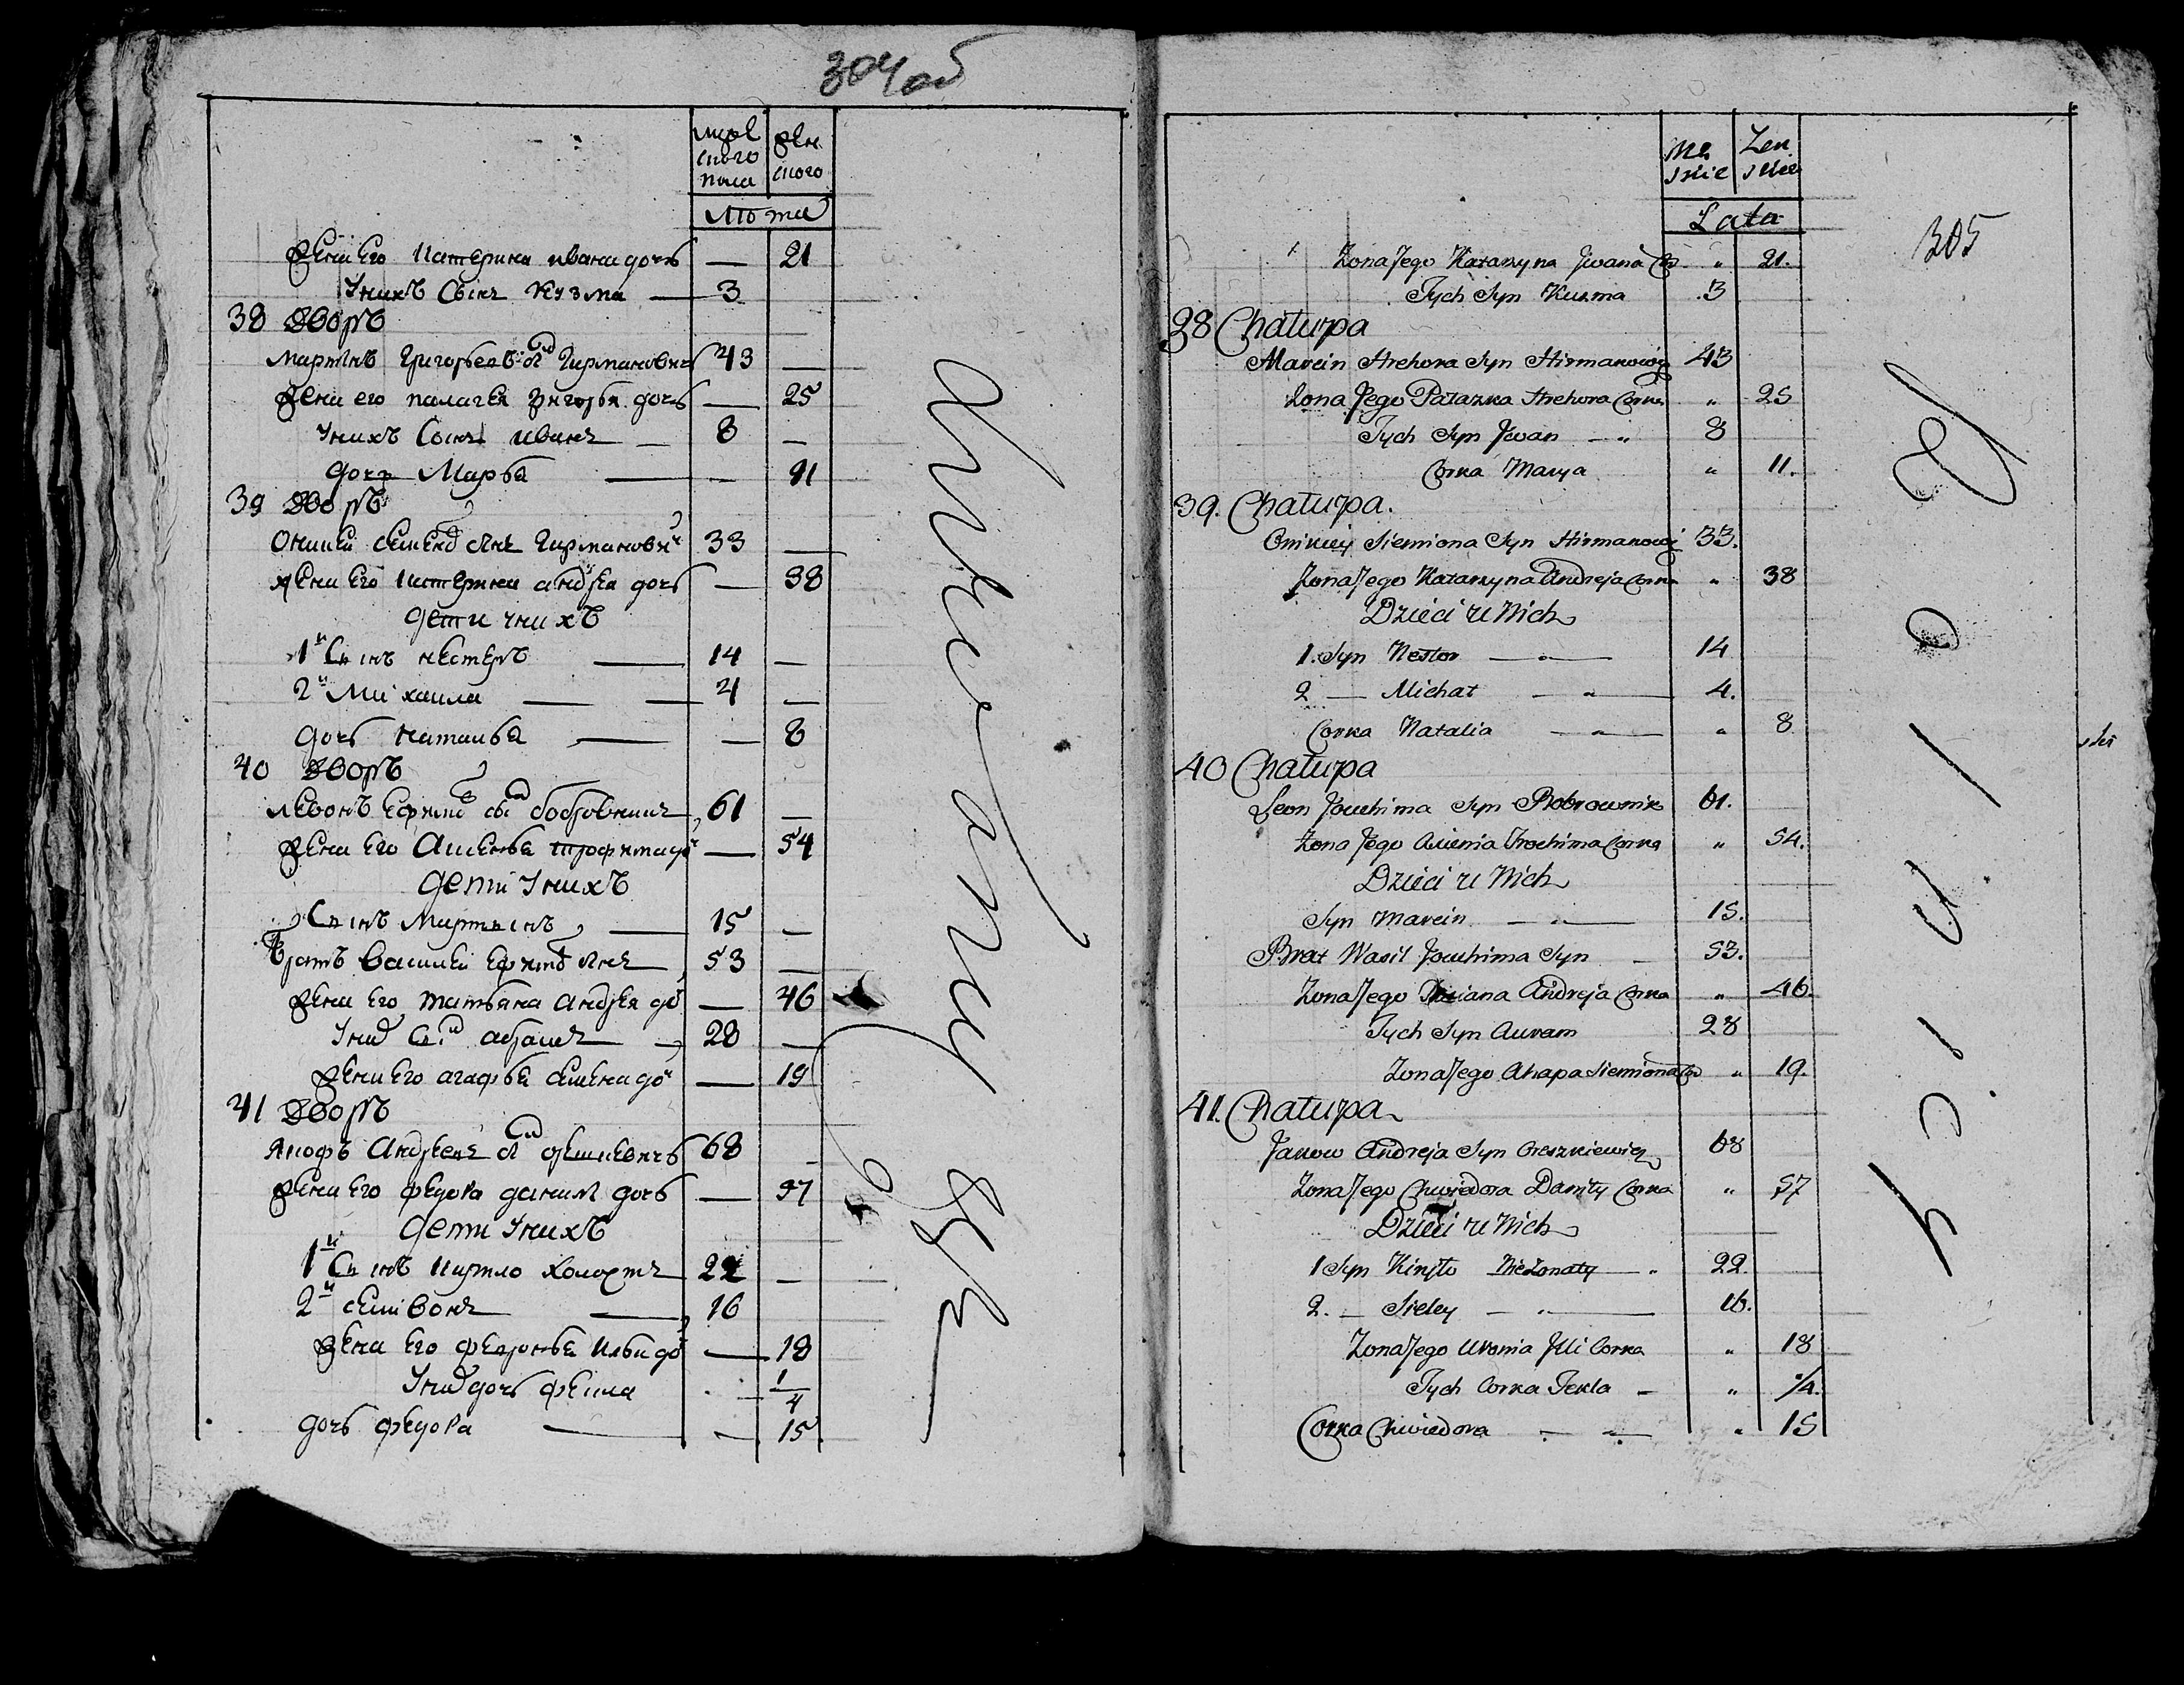 304 об
муж
ского
пола
жен
ского
Лѣта
жена его Катерина ивана дочь — 21
Унихъ Сынъ Кузма — 3
38 Дворъ
Мартинъ Григорьевъ сы Гирмановичъ 43 —
жена его палагея григорья дочь — 25
Унихъ Сынъ иванъ — 8 —
дочь Марья — 11
39 Дворъ
Оникей семена сынъ Гирманови 33 —
жена Его Катерина андрея дочь — 38
дети унихъ
1й Сынъ нестеръ — 14 —
2й Михаила — 4 —
дочь наталья — 8
40 Дворъ
Левонъ Ефима сы бобровникъ 61 —
жена Его Аксенья трофима до — 54
дети Унихъ
Сынъ Мартынъ — 15 —
Братъ Василей Ефима сынъ 53 —
жена Его татьяна Андрея до — 46
Уних Сы абрамъ — 28 —
жена Его агафья семена до — 19
41 Дворъ
Якофъ Андреевъ сы орешкевичъ 68 —
жена Его федора данила дочь — 57
дети Унихъ
1й Сынъ Кирило холостъ 22 —
2й селивонъ — 16
жена Его февронья Ильи до — 18
Уних дочь фекла 1/4
дочь федора — 15
Męskie
Żenskie
Lata
305
Zona Jego Katarzyna Jwana Cor " 21.
Tych Syn Kuzma 3
38 Chałupa
Marcin Hrehora Syn Hirmanowicz 43
Zona Jego Pałazka Hrehora Corka " 25
Tych Syn Jwan — " 8
Corka Marya " 11.
39. Chałupa.
Onikiey Siemiona Syn Hirmanowicz 33.
Zona Jego Katarzyna Andreja Corka " 38
Dzieci u Nich
1. Syn Nestor — " — 14
2 — Michał — " — 4.
Corka Natalia — " — " 8
40 Chałupa
Leon Jouchima Syn Bobrownik 61.
Zona Jego Axienia Trochima Corka " 54.
Dzieci u Nich
Syn Marcin — " — 15.
Brat Wasil Jouchima Syn — 53.
Zona Jego Taciana Andreja Corka " 46.
Tych Syn Auram 28
Zona Jego Ahapa Siemiona Cor " 19.
41. Chałupa
Jakow Andreja Syn Oreszkiewicz 68
Zona Jego Chwiedora Daniły Corka " 57
Dzieci u Nich
1 Syn Kiryło Nieżonaty — " 22.
2. — Sieley — " — 16.
Zona Jego Urania Jlli Corka " 18
Tych Corka Tekla — " 1/4.
Corka Chwiedora — " — " 15